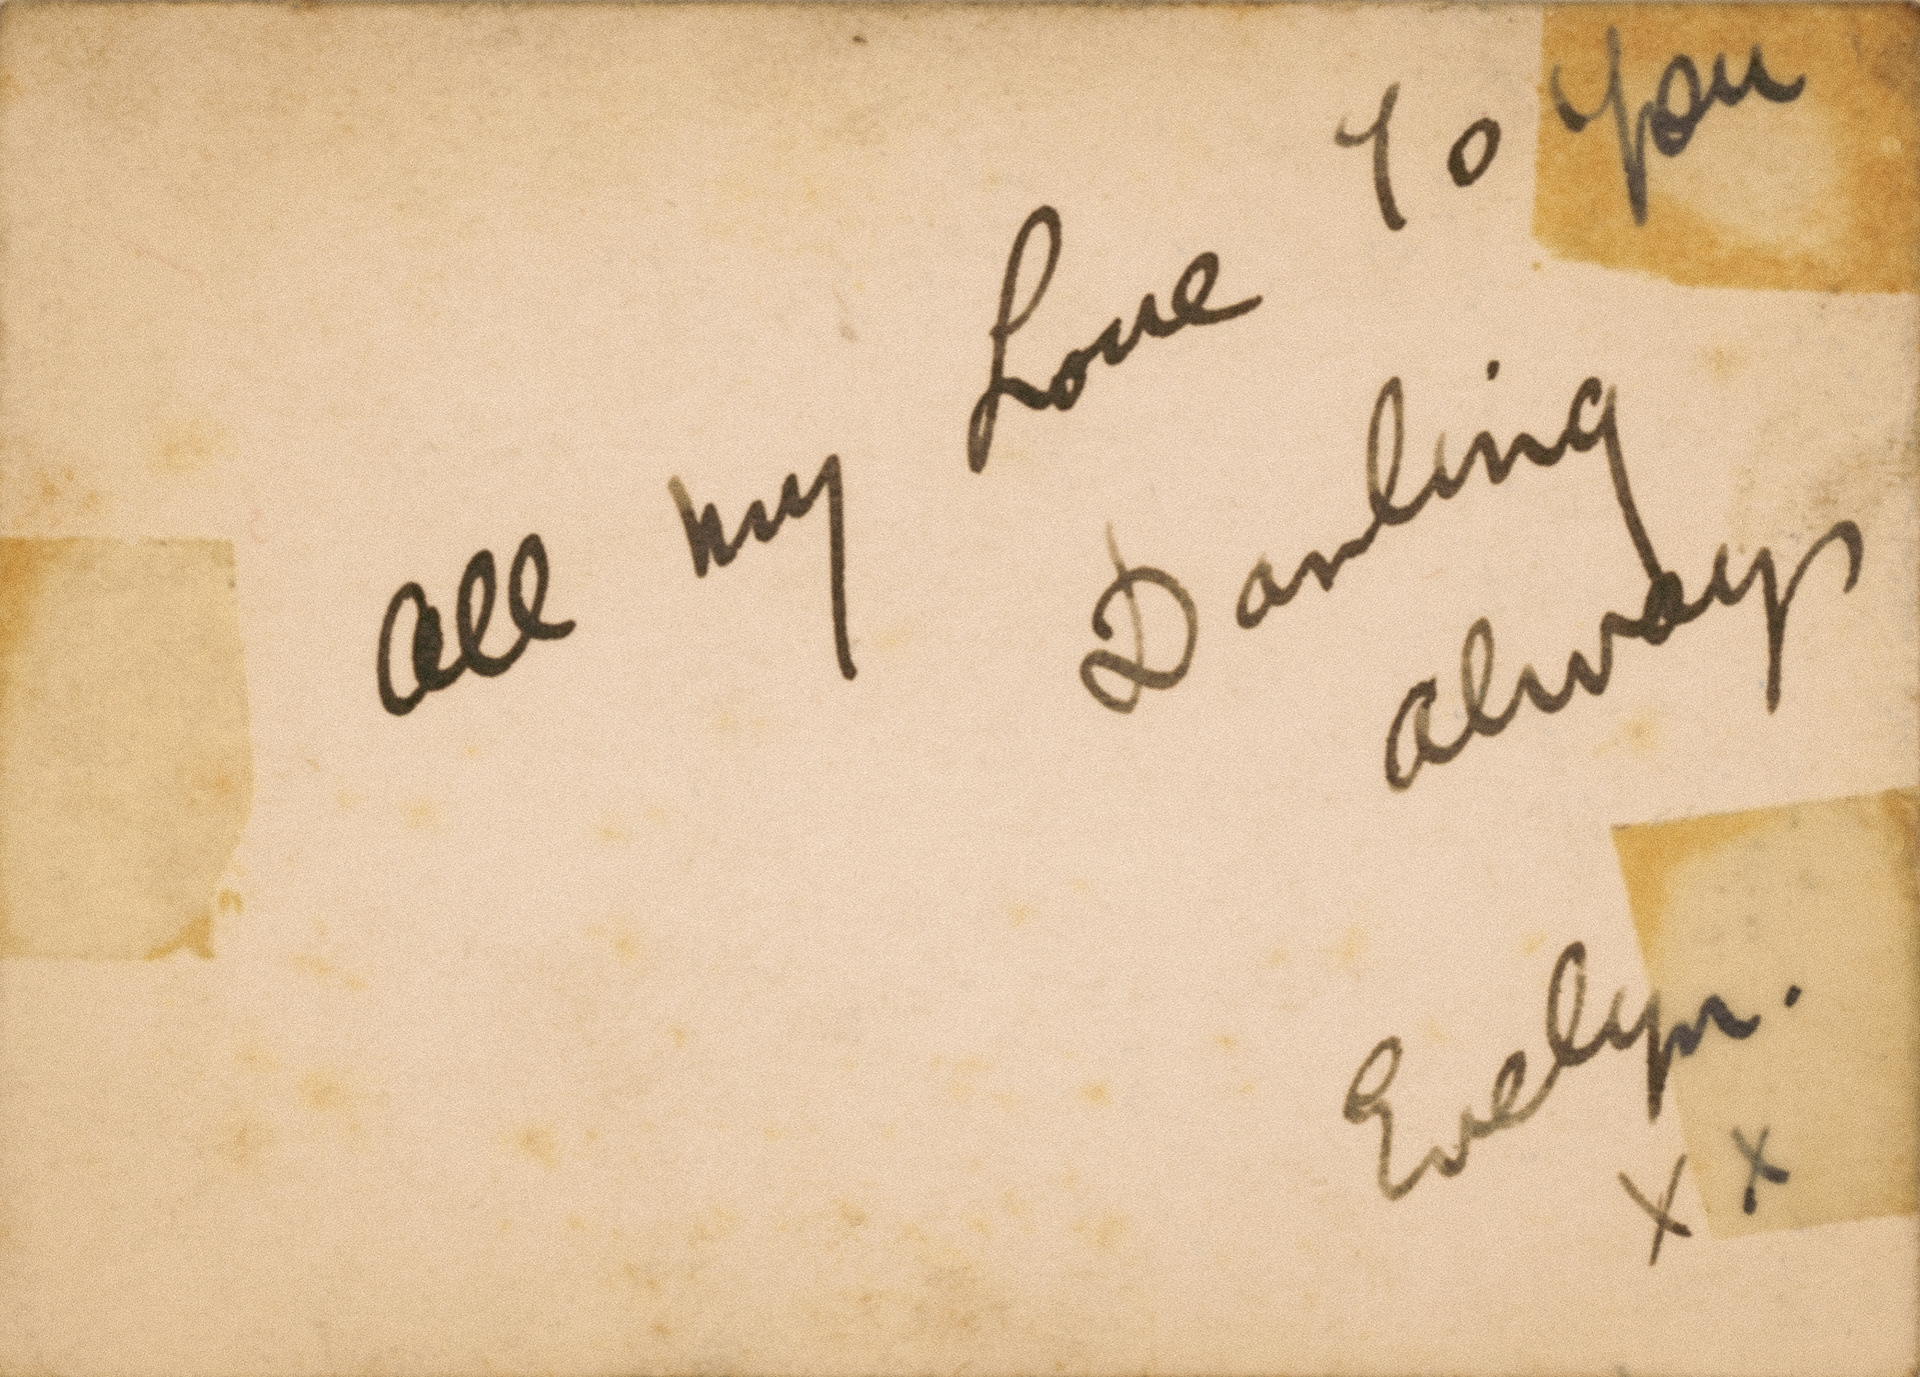 All my Love To You
Darling
always
Evelyn.
x x